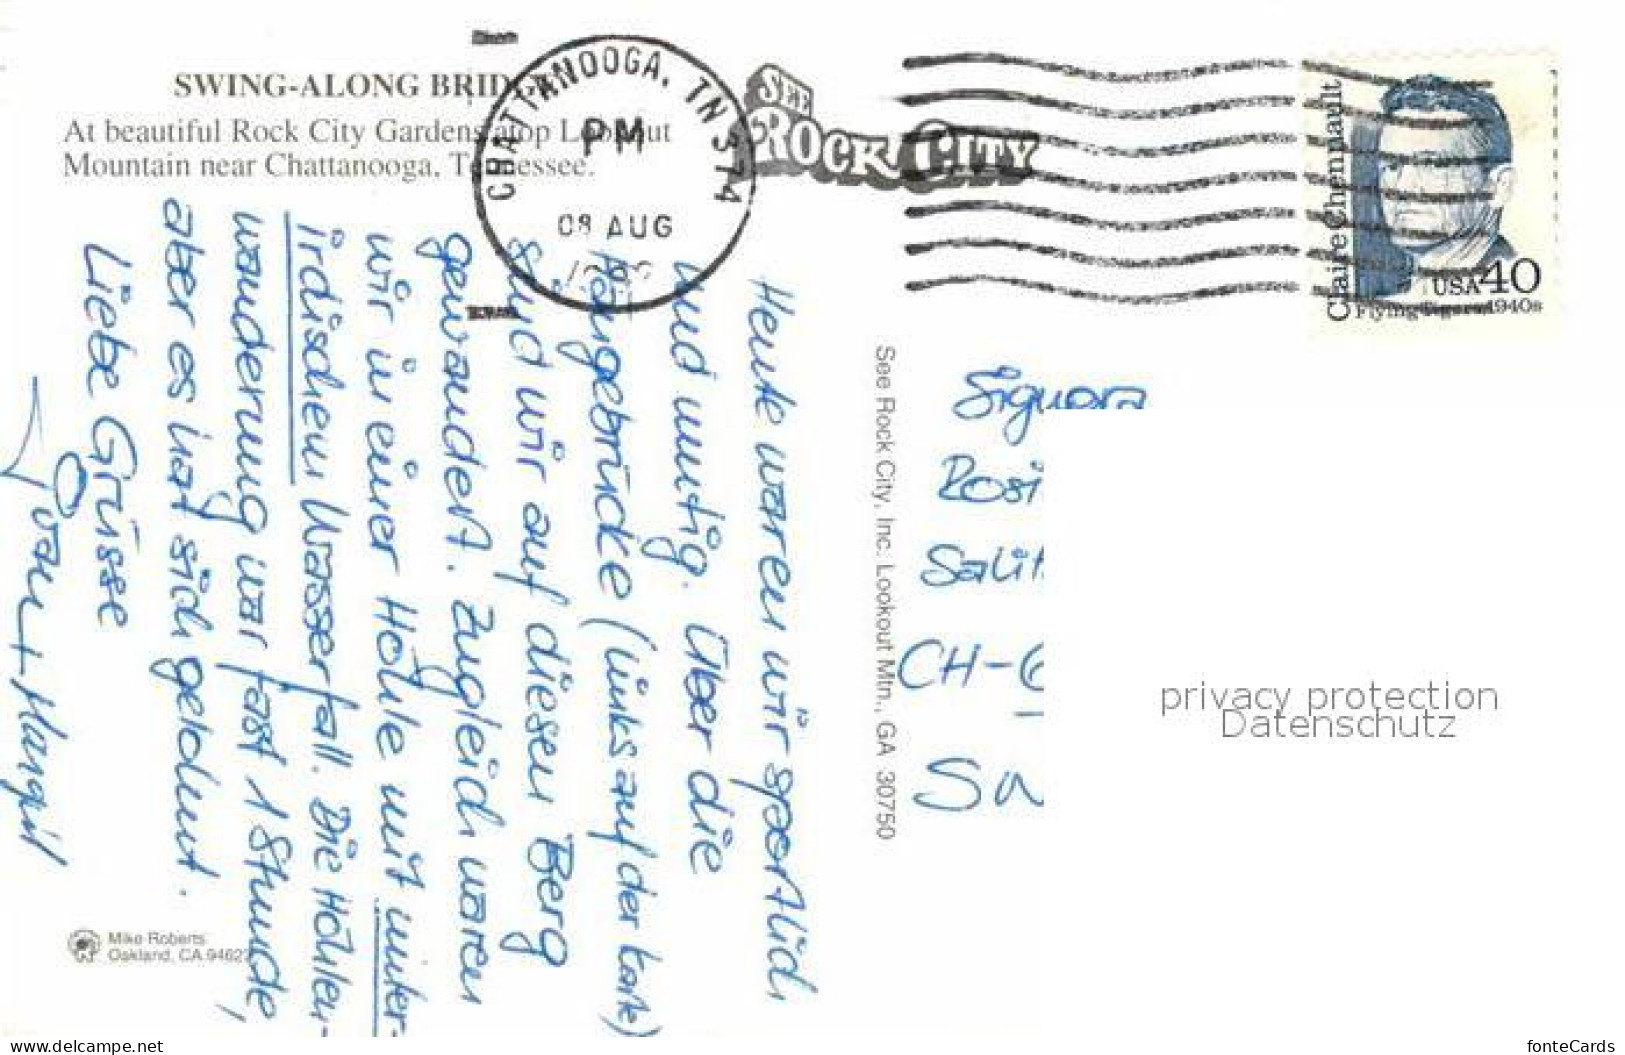 SWING-ALONG BRIDGE
At beautiful Rock City Gardens atop Lookout
Mountain near Chattanooga, Tennessee.
CHATTANOOGA, TN 374
PM
08 AUG
SEE
ROCK CITY
Claire Chennault
USA 40
Flying Tigers, 1940s
Heute waren wir sportlich
und mutig. Über die
Hängebrücke (links auf der Karte)
sind wir auf diesen Berg
gewandert. Zugleich waren
wir in einer Höhle mit unter-
irdischem Wasserfall. Die Höhlen-
wanderung war fast 1 Stunde,
aber es hat sich gelohnt.
Liebe Grüsse
See Rock City, Inc. Lookout Mtn., GA 30750
Signora
Rosi
Sali
CH-6
Mike Roberts
Oakland, CA 94627
privacy protection
Datenschutz
www.delcampe.net
fonteCards